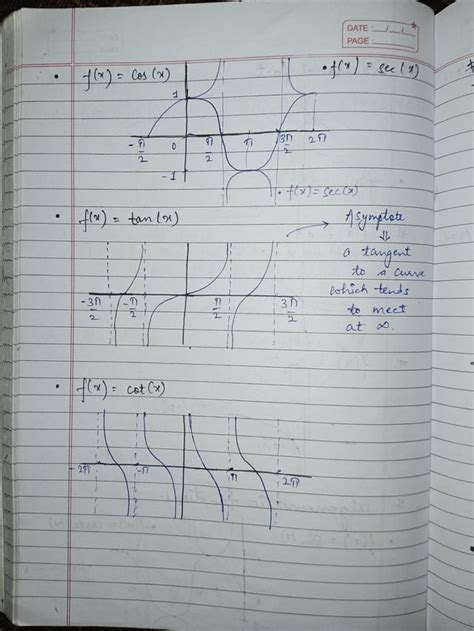 DATE: __/__/__
PAGE:
• f(x) = cos(x)
• f(x) = sec(x)
1
-π/2 0 π/2 π 3π/2 2π
-1
• f(x) = sec(x)
• f(x) = tan(x)
Asymptote
⇓
a tangent
to a curve
which tends
to meet
at ∞.
-3π/2 -π/2 π/2 3π/2
• f(x) = cot(x)
-2π -π π 2π